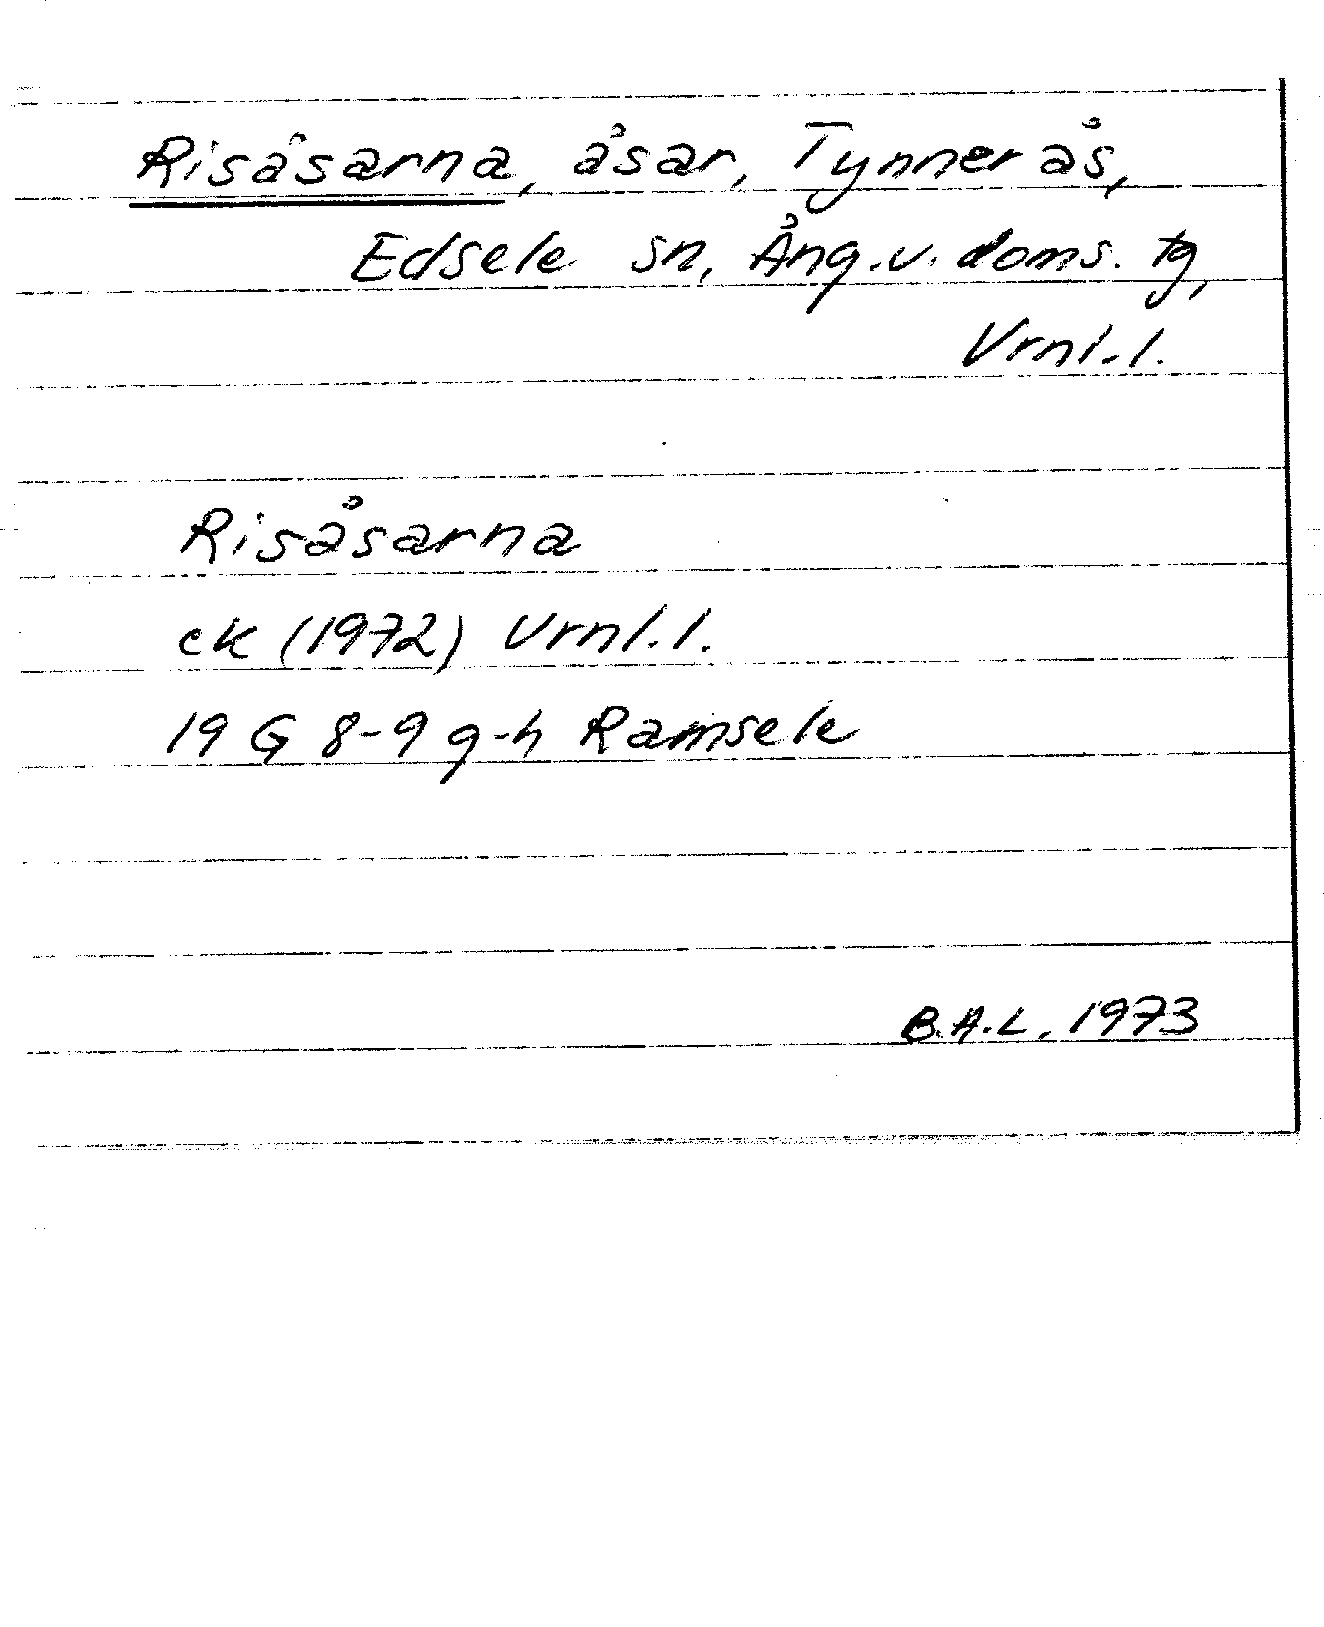 Risåsarna, åsar, Tynnerås,
Edsele sn, Ång.v. doms. tg,
Vrnl.l.
Risåsarna
ek (1972) Vrnl.l.
19 G 8-9 g-h Ramsele
B.A.L, 1973